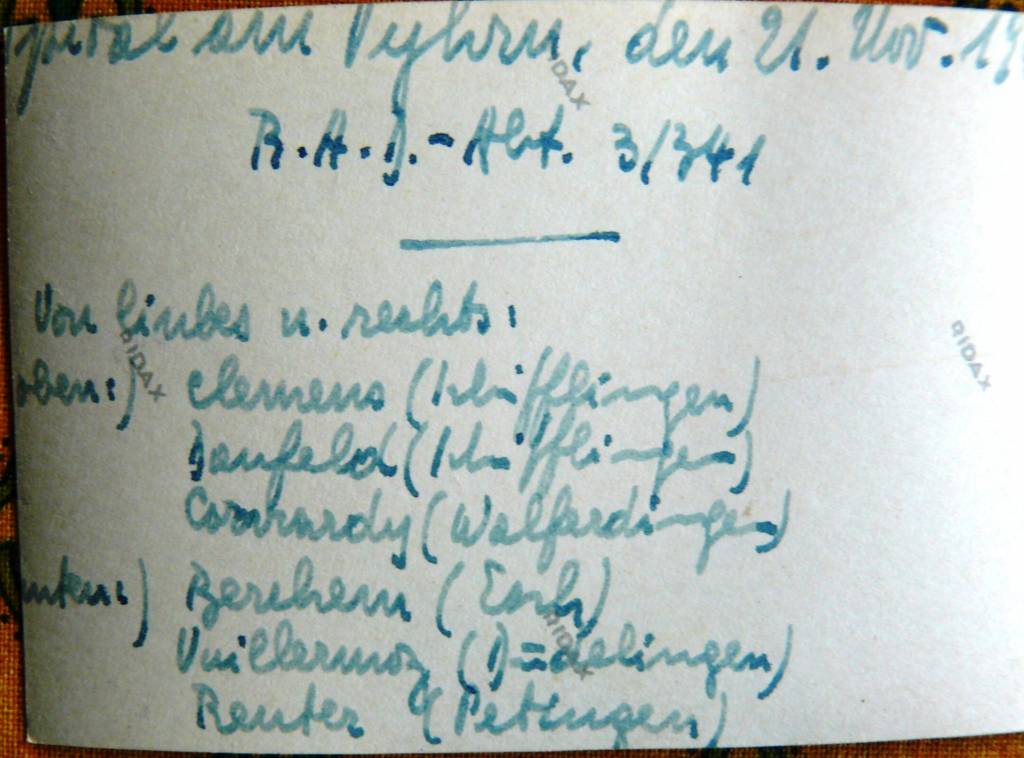 Spital am Pyhrn, den 21. Nov. 19
R.A.D.-Abt. 3/341
Von linkes n. rechts:
oben:) Clemens (Schifflingen)
Danfeld (Schifflingen)
Conrardy (Walferdingen)
unten:) Berchem (Esch)
Vuillermoz (Düdelingen)
Reuter (Petingen)
RIDAX
RIDAX
RIDAX
RIDAX